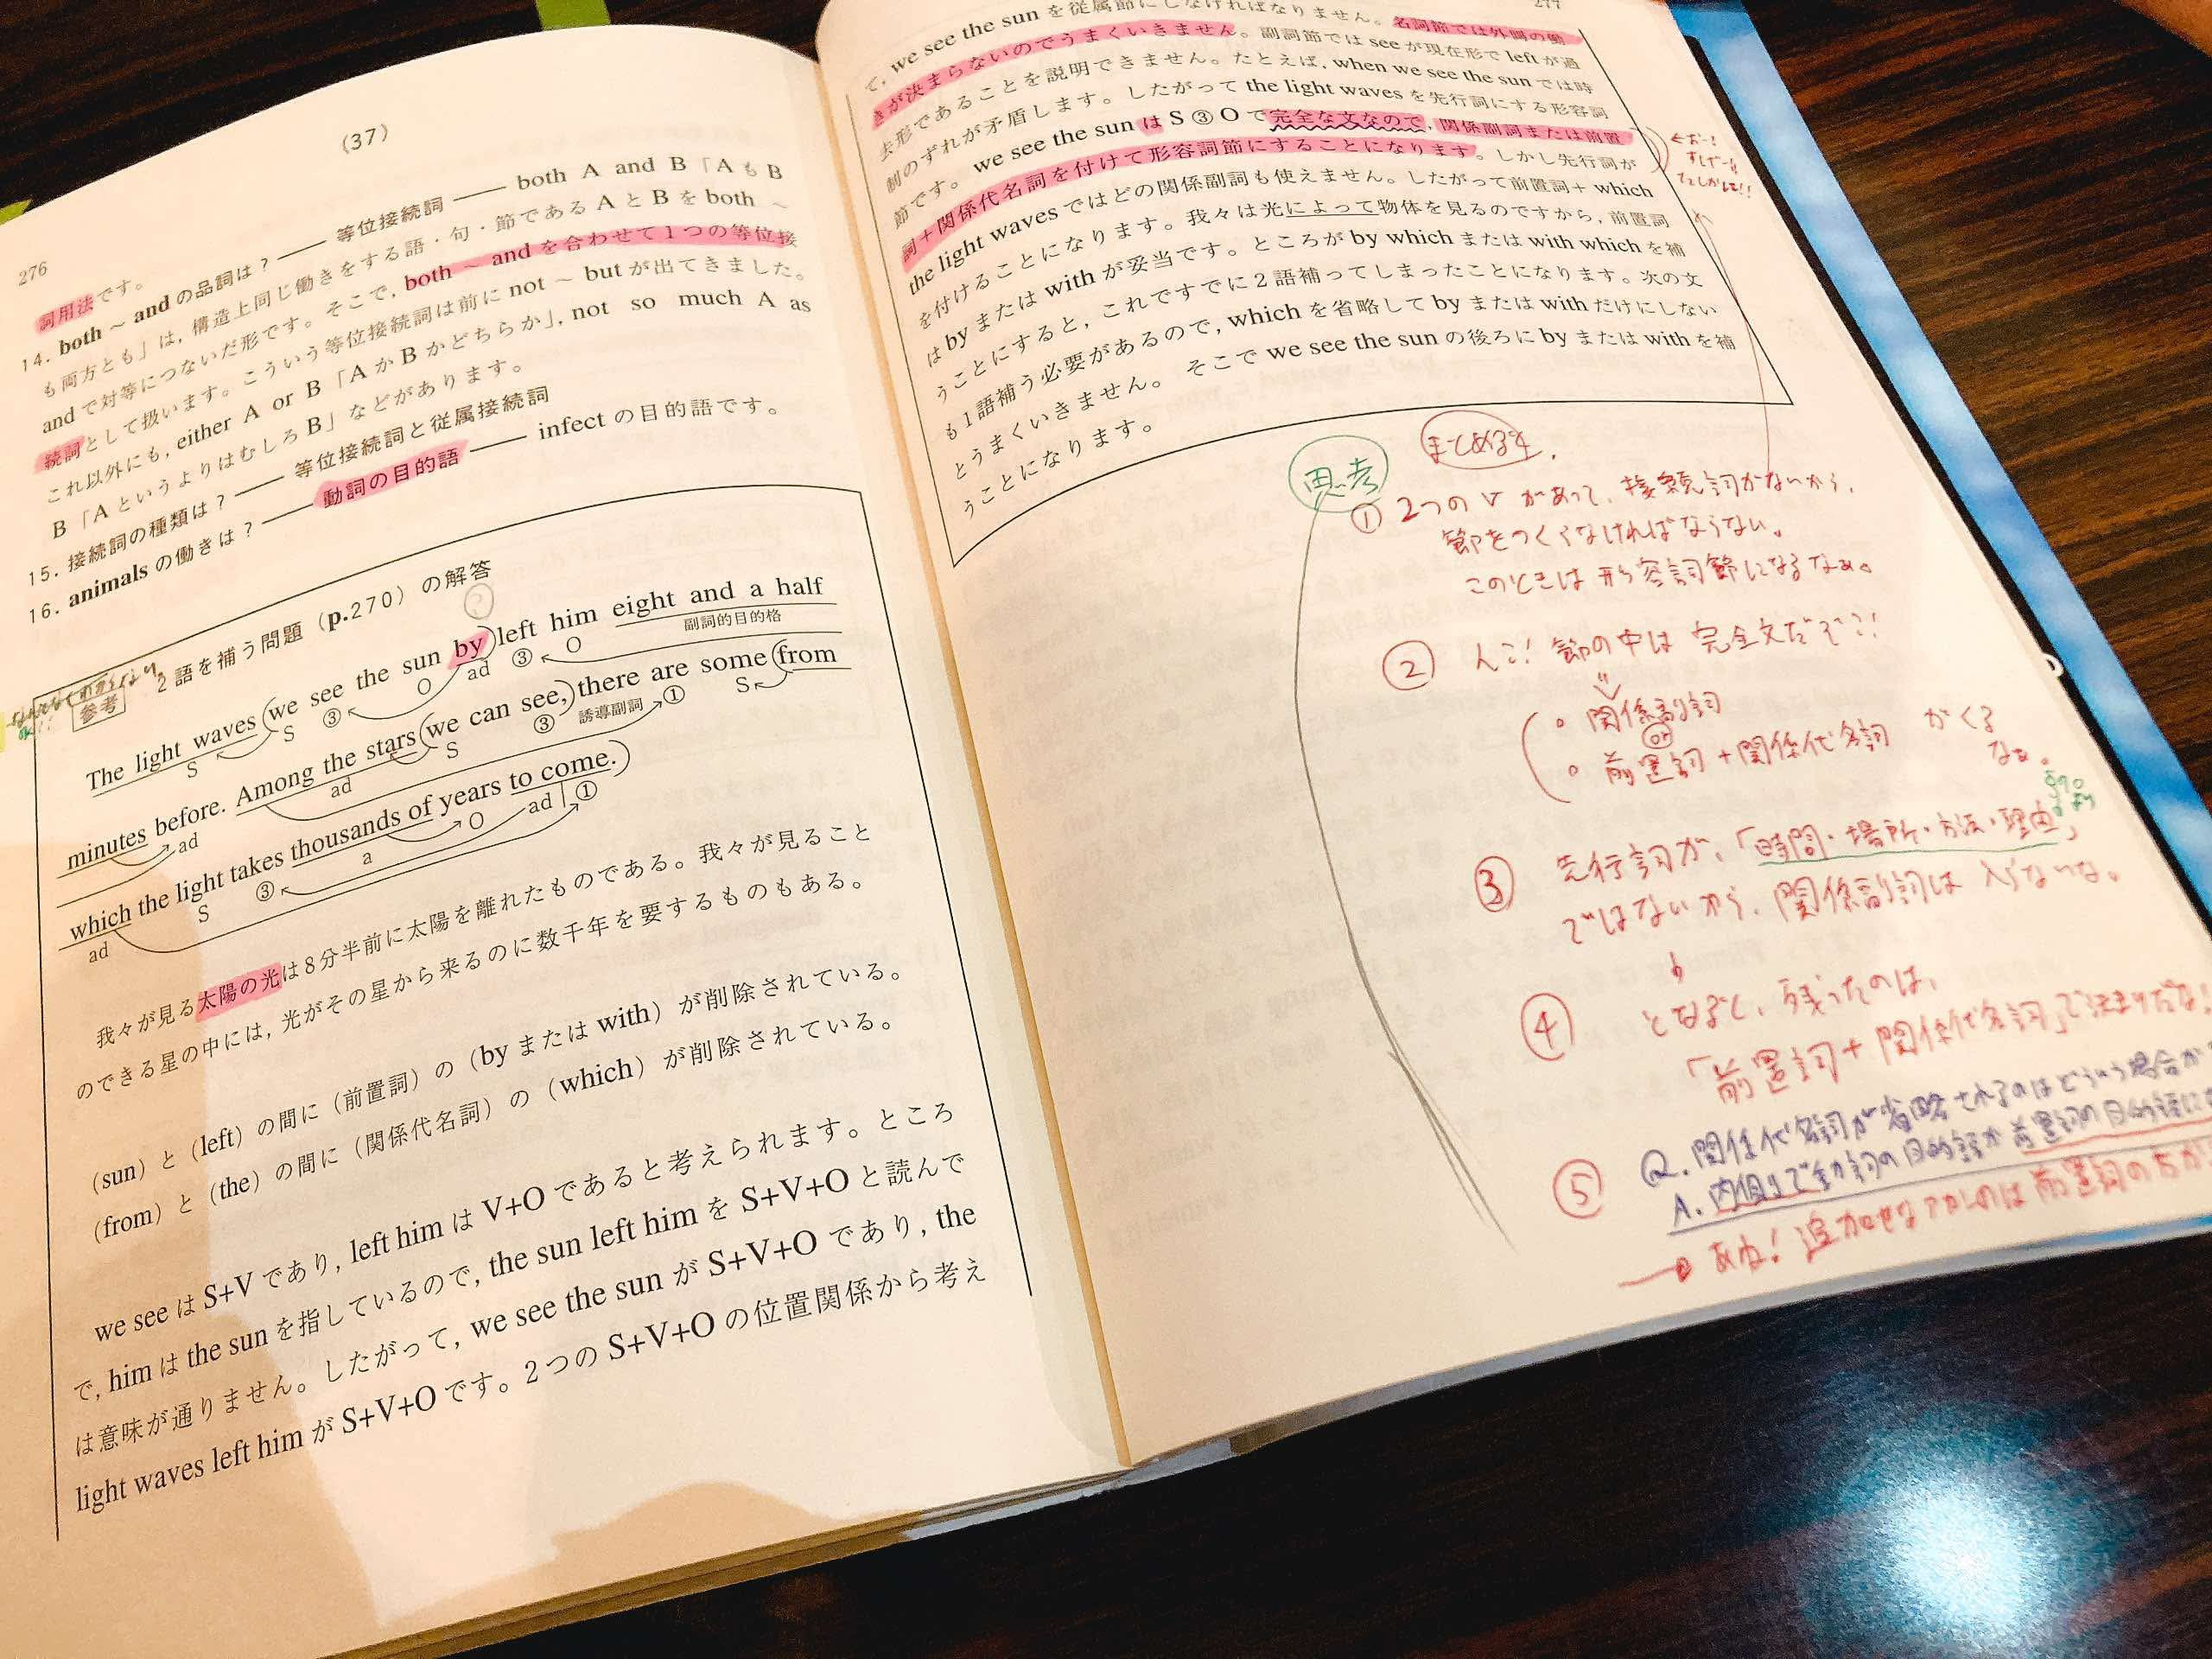 276
(37)
詞用法です。
14. both ~ and の品詞は？ —— 等位接続詞 —— both A and B「A も B
も両方とも」は, 構造上同じ働きをする語・句・節である A と B を both ~
and で対等につないだ形です。そこで, both ~ and を合わせて1つの等位接
続詞として扱います。こういう等位接続詞は前に not ~ but が出てきました。
これ以外にも, either A or B「A か B かどちらか」, not so much A as
B「A というよりはむしろ B」などがあります。
15. 接続詞の種類は？ —— 等位接続詞と従属接続詞
16. animals の働きは？ —— 動詞の目的語 —— infect の目的語です。
参考 2語を補う問題（p.270）の解答
?
The light waves (we see the sun by) left him eight and a half
S S ③ O ad ③ O 副詞的目的格
minutes before. Among the stars (we can see,) there are some (from
ad ad S ③ 誘導副詞 ① S
which the light takes thousands of years to come.)
ad S ③ a O ad ①
我々が見る太陽の光は8分半前に太陽を離れたものである。我々が見ること
のできる星の中には, 光がその星から来るのに数千年を要するものもある。
（sun）と（left）の間に（前置詞）の（by または with）が削除されている。
（from）と（the）の間に（関係代名詞）の（which）が削除されている。
we see は S+V であり, left him は V+O であると考えられます。ところ
で, him は the sun を指しているので, the sun left him を S+V+O と読んで
は意味が通りません。したがって, we see the sun が S+V+O であり, the
light waves left him が S+V+O です。2つの S+V+O の位置関係から考え
277
て, we see the sun を従属節にしなければなりません。名詞節では外側の働
きが決まらないのでうまくいきません。副詞節では see が現在形で left が過
去形であることを説明できません。たとえば, when we see the sun では時
制のずれが矛盾します。したがって the light waves を先行詞にする形容詞
節です。 we see the sun は S ③ O で完全な文なので, 関係副詞または前置
詞＋関係代名詞を付けて形容詞節にすることになります。しかし先行詞が
the light waves ではどの関係副詞も使えません。したがって前置詞＋ which
を付けることになります。我々は光によって物体を見るのですから, 前置詞
は by または with が妥当です。ところが by which または with which を補
うことにすると, これですでに2語補ってしまったことになります。次の文
も1語補う必要があるので, which を省略して by または with だけにしない
とうまくいきません。 そこで we see the sun の後ろに by または with を補
うことになります。
たしかに!!
思考
まとめると
① 2つの V があって, 接続詞がないから,
節をつくらなければならない。
このときは 形容詞節になるなぁ。
② ん?! 節の中は 完全文だぞ?!
・関係副詞
or
・前置詞＋関係代名詞 がくる
なぁ。
③ 先行詞が,「時間・場所・方法・理由」
ではないから, 関係副詞は 入らないな。
④ となると, 残ったのは,
「前置詞＋関係代名詞」で決まりだな!
⑤ Q. 関係代名詞が省略されるのはどういう場合か
A. 内側で動詞の目的語か 前置詞の目的語に